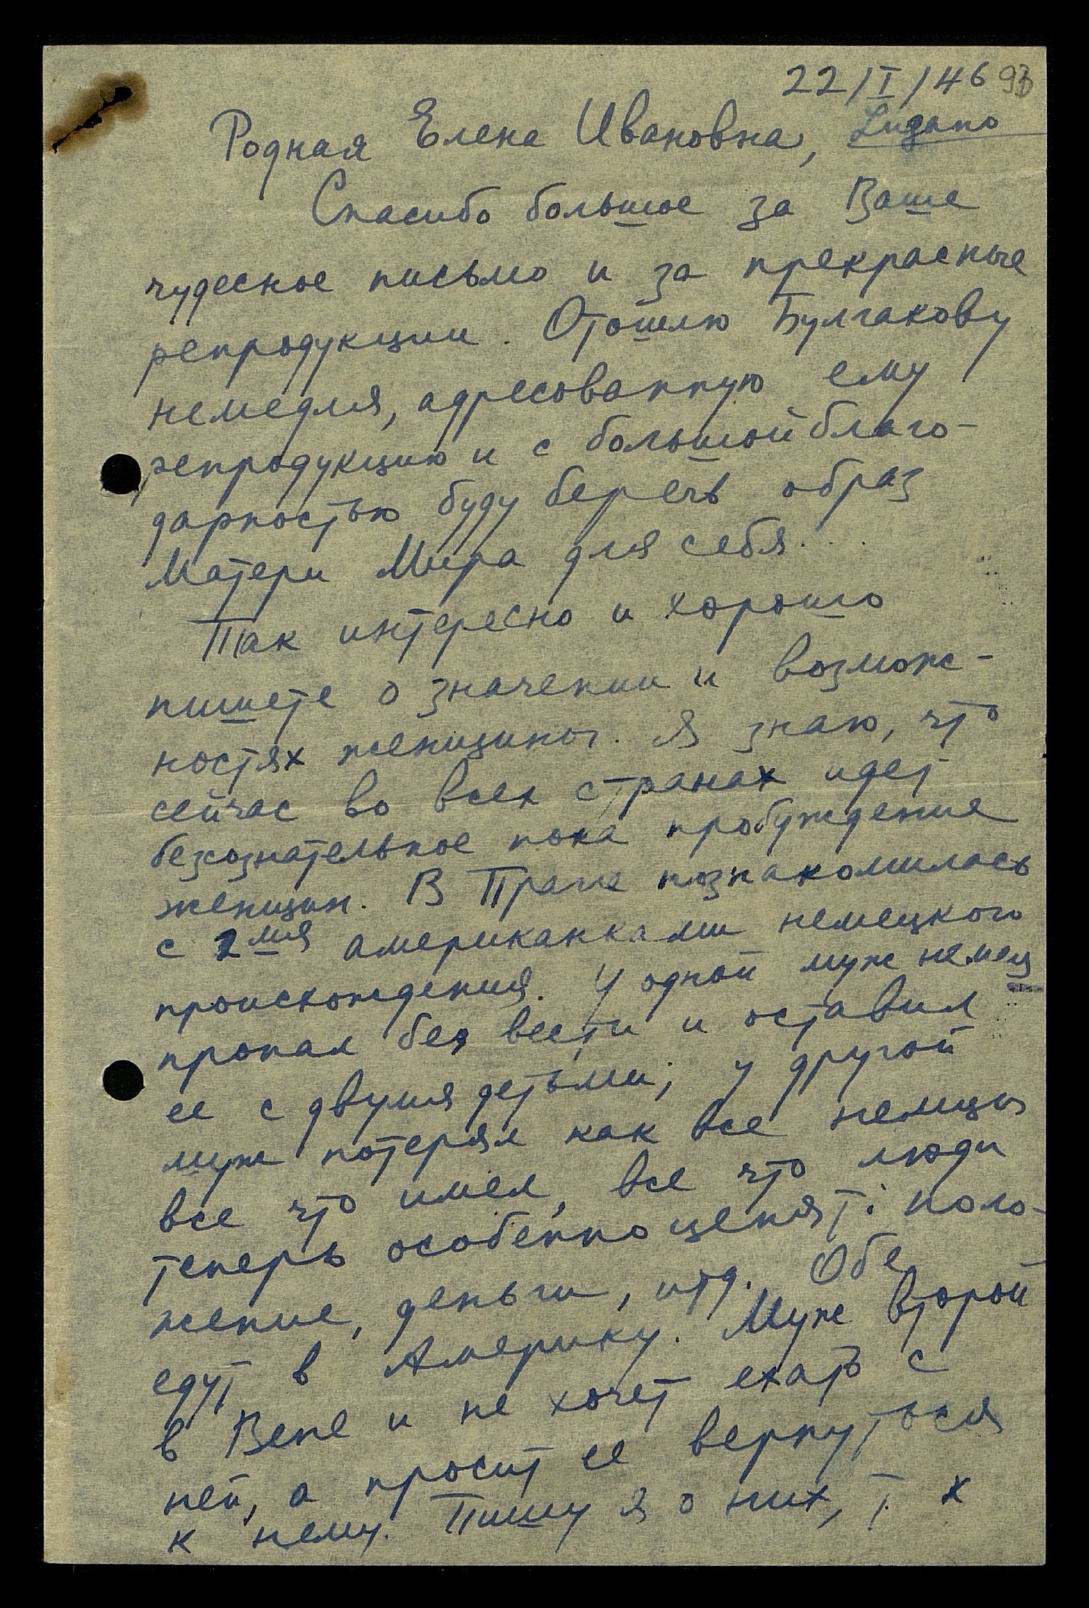 22/I/46 93
Lugano
Родная Елена Ивановна,
Спасибо большое за Ваше
чудесное письмо и за прекрасные
репродукции. Отошлю Булгакову
немедля, адресованную ему
репродукцию и с большой благо-
дарностью буду беречь образ
Матери Мира для себя...
Так интересно и хорошо
пишете о значении и возмож-
ностях женщины. Я знаю, что
сейчас во всех странах идет
безсознательное пока пробуждение
женщин. В Праге познакомилась
с 2мя американками немецкого
происхождения. У одной муж немец
пропал без вести и оставил
ее с двумя детьми; у другой
муж потерял как все немцы
все что имел, все что люди
теперь особенно ценят: поло-
жение, деньги, итд. Обе
едут в Америку. Муж второй
в Вене и не хочет ехать с
ней, а просит ее вернуться
к нему. Пишу я о них, т. к